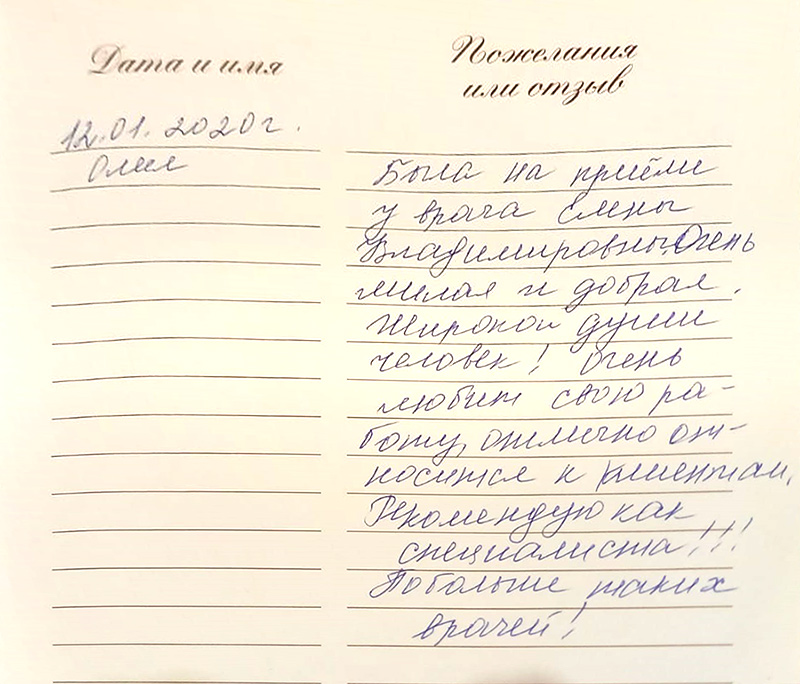 Дата и имя
Пожелания
или отзыв
12.01.2020г.
Олия
Была на приёми
у врача Елены
Владимировны. Очень
милая и добрая.
Широкой души
человек! Очень
любит свою ра-
боту, отлично от-
носится к клиентам,
Рекомендую как
специалиста!!!
Побольше таких
врачей!